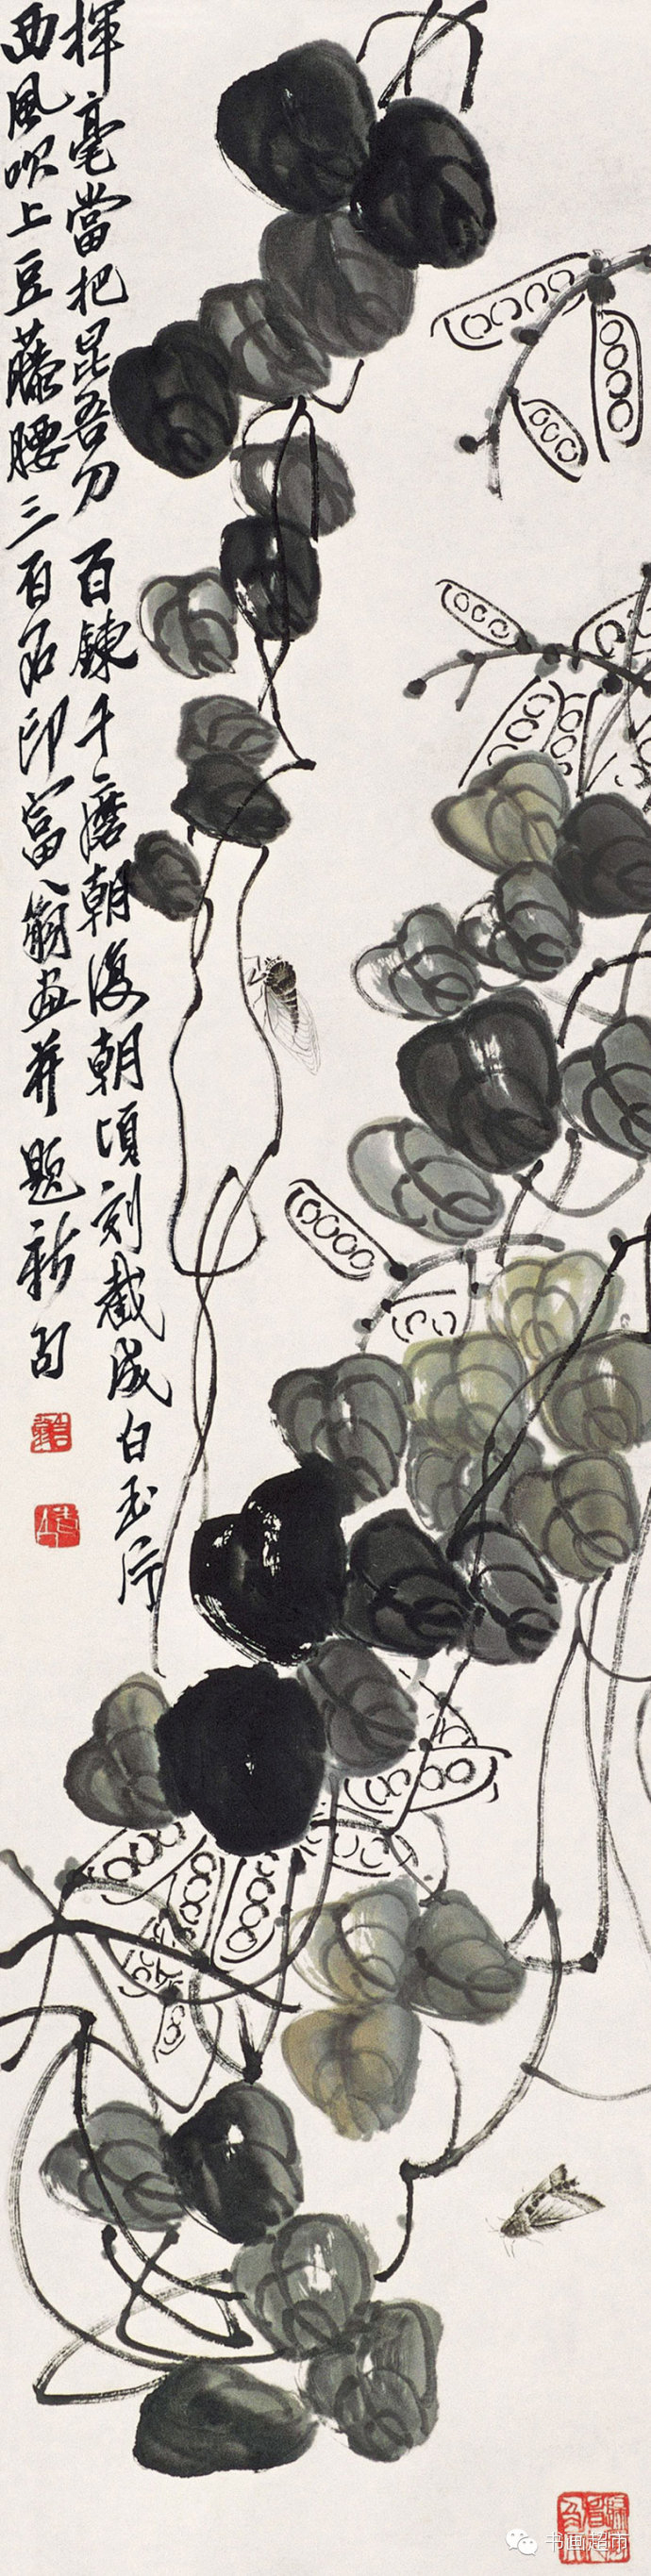 揮毫當把昆吾刀百鍊千磨朝復朝頃刻截成白玉片
西風吹上豆藤腰三百石印富翁畫并題新句
书画超市